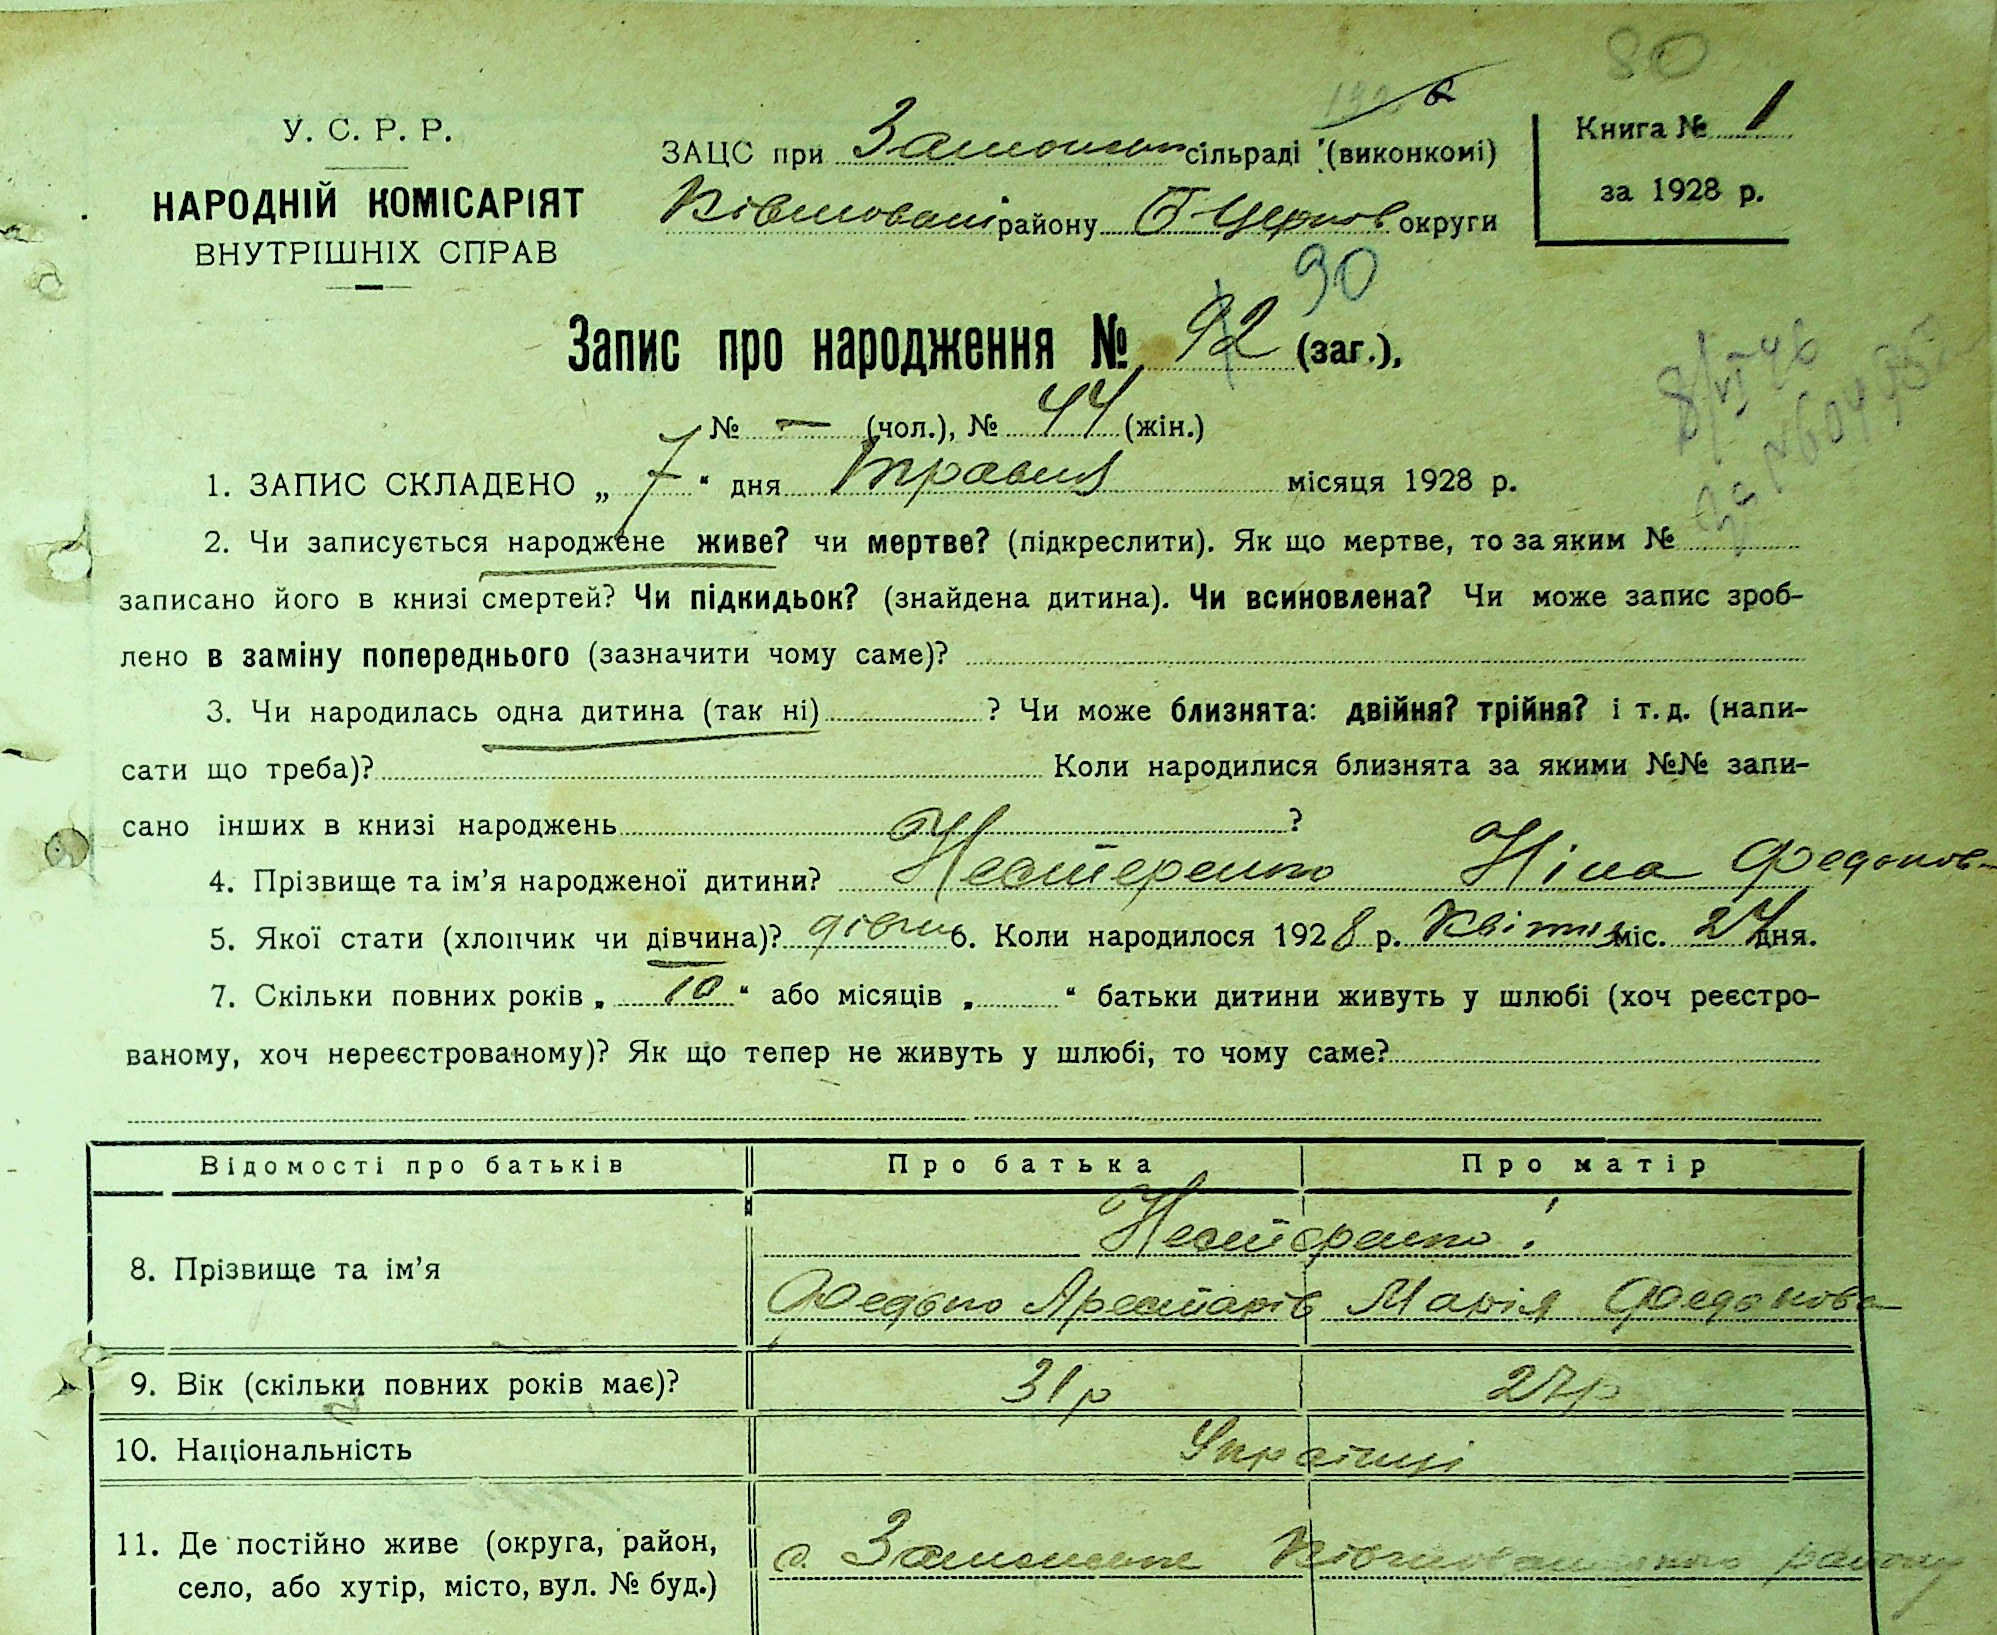 80
У. С. Р. Р.
НАРОДНІЙ КОМІСАРІЯТ
ВНУТРІШНІХ СПРАВ
ЗАЦС при сільраді (виконкомі)
району Б Церков округи
Книга № 1
за 1928 р.
90
Запис про народження № 92 (заг.),
№ — (чол.), № 44 (жін.)
8/VI 46
1. ЗАПИС СКЛАДЕНО „ 7 “ дня Травня місяця 1928 р.
2. Чи записується народжене живе? чи мертве? (підкреслити). Як що мертве, то за яким №
записано його в книзі смертей? Чи підкидьок? (знайдена дитина). Чи всиновлена? Чи може запис зроб-
лено в заміну попереднього (зазначити чому саме)?
3. Чи народилась одна дитина (так ні) ? Чи може близнята: двійня? трійня? і т. д. (напи-
сати що треба)? Коли народилися близнята за якими №№ запи-
сано інших в книзі народжень ?
4. Прізвище та ім’я народженої дитини? Нестеренко Ніна Федоров-
5. Якої стати (хлопчик чи дівчина)? дівчи 6. Коли народилося 1928 р. Квітня міс. 27 дня.
7. Скільки повних років „ 10 “ або місяців „ “ батьки дитини живуть у шлюбі (хоч реєстро-
ваному, хоч нереєстрованому)? Як що тепер не живуть у шлюбі, то чому саме?
Відомості про батьків Про батька Про матір
8. Прізвище та ім’я Нестеренко
Марія
9. Вік (скільки повних років має)? 31 р 27 р
10. Національність Українці
11. Де постійно живе (округа, район,
село, або хутір, місто, вул. № буд.)
с. району